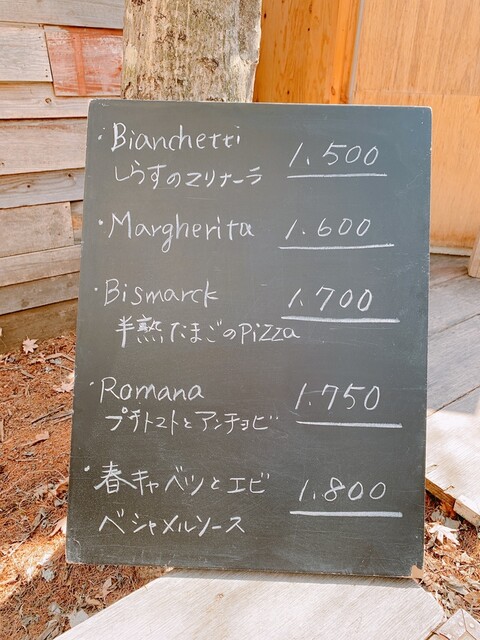 ・Bianchetti 1.500
しらすのマリナーラ
・Margherita 1.600
・Bismarck 1.700
半熟たまごのPizza
・Romana 1.750
プチトマトとアンチョビ
・春キャベツとエビ 1.800
ベシャメルソース